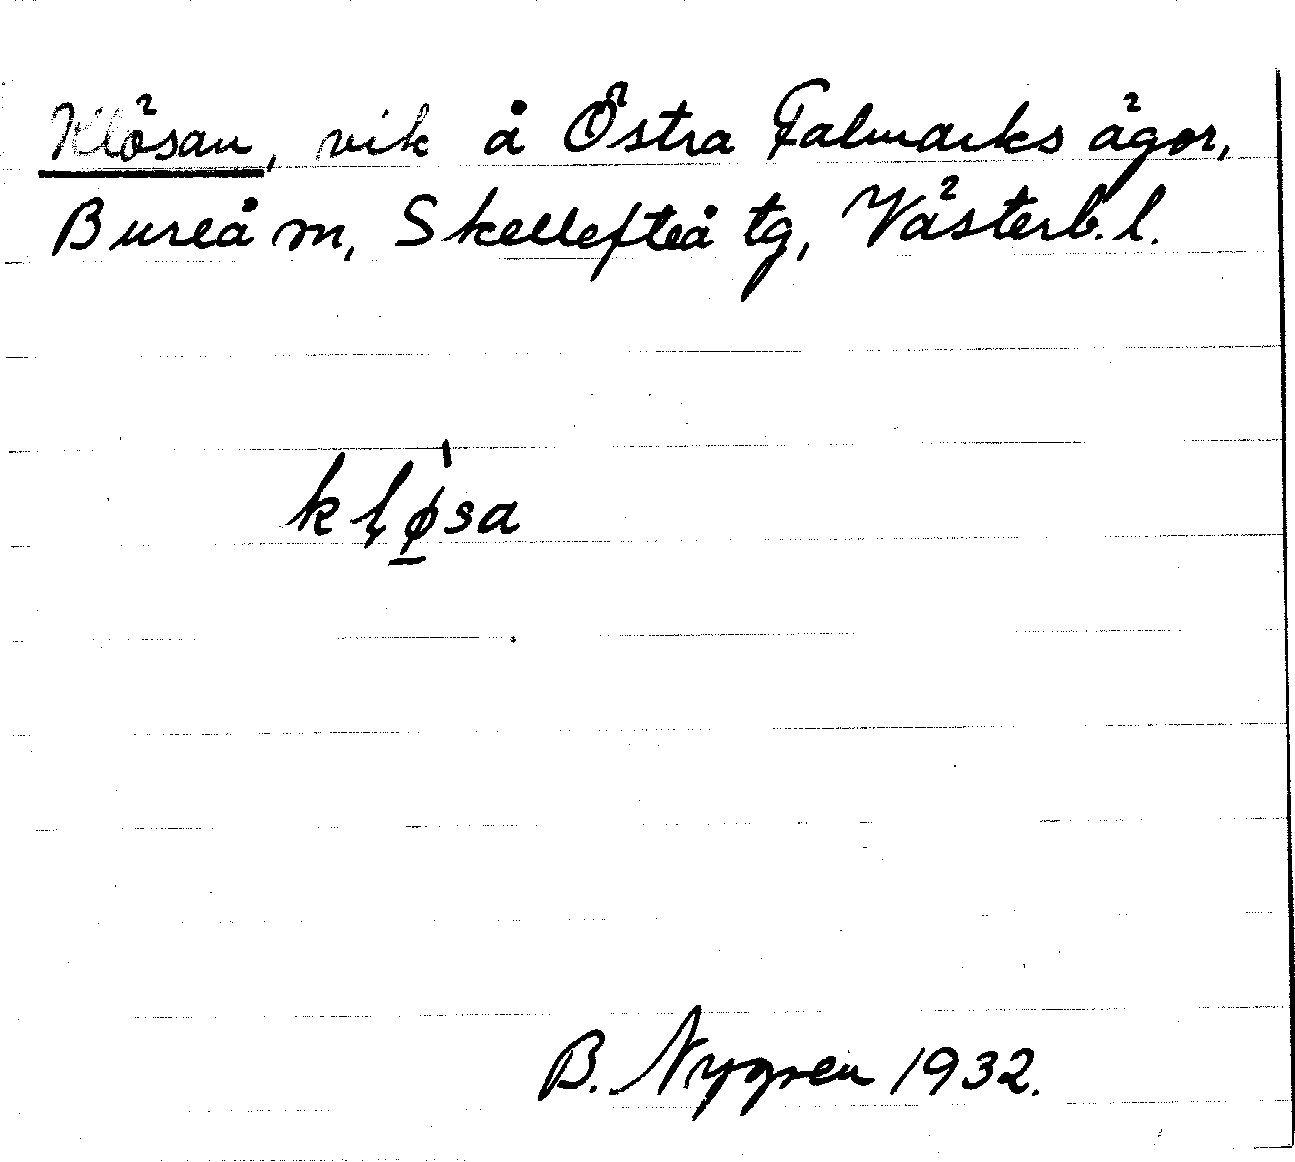 Klösan, vik å Östra Falmarks ägor,
Bureå m, Skellefteå tg, Västerb. l.
kl̥ø̲̀sa
B. Nygren 1932.